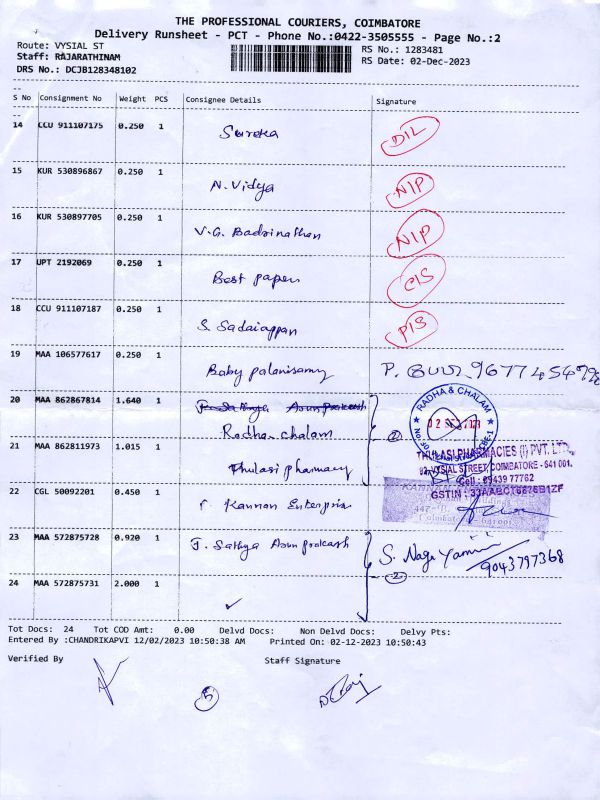 THE PROFESSIONAL COURIERS, COIMBATORE
Delivery Runsheet - PCT - Phone No.:0422-3505555 - Page No.:2
Route: VYSIAL ST
Staff: RAJARATHINAM
DRS No.: DCJB128348102
RS No.: 1283481
RS Date: 02-Dec-2023
S No Consignment No Weight PCS Consignee Details Signature
14 CCU 911107175 0.250 1 Sureka DIL
15 KUR 530896867 0.250 1 N. Vidya NIP
16 KUR 530897705 0.250 1 V.G. Badrinathan NIP
17 UPT 2192069 0.250 1 Best paper CIS
18 CCU 911107187 0.250 1 S. Sadaiappan PIS
19 MAA 106577617 0.250 1 Baby palanisamy P.
20 MAA 862867814 1.640 1 Arun prakash
Radha chalam
RADHA & CHALAM
21 MAA 862811973 1.015 1 Thulasi pharmacy
THULASI PHARMACIES (I) PVT. LTD.
VYSIAL STREET, COIMBATORE - 641 001.
Cell : 09439 77762
GSTIN :
22 CGL 50092201 0.450 1 Kannan Enterprises
23 MAA 572875728 0.920 1 J. Sathya Arun prakash S. Naga Yamini
9043797368
24 MAA 572875731 2.000 1 ✓
2
Tot Docs: 24 Tot COD Amt: 0.00 Delvd Docs: Non Delvd Docs: Delvy Pts:
Entered By :CHANDRIKAPVI 12/02/2023 10:50:38 AM Printed On: 02-12-2023 10:50:43
Verified By Staff Signature
5